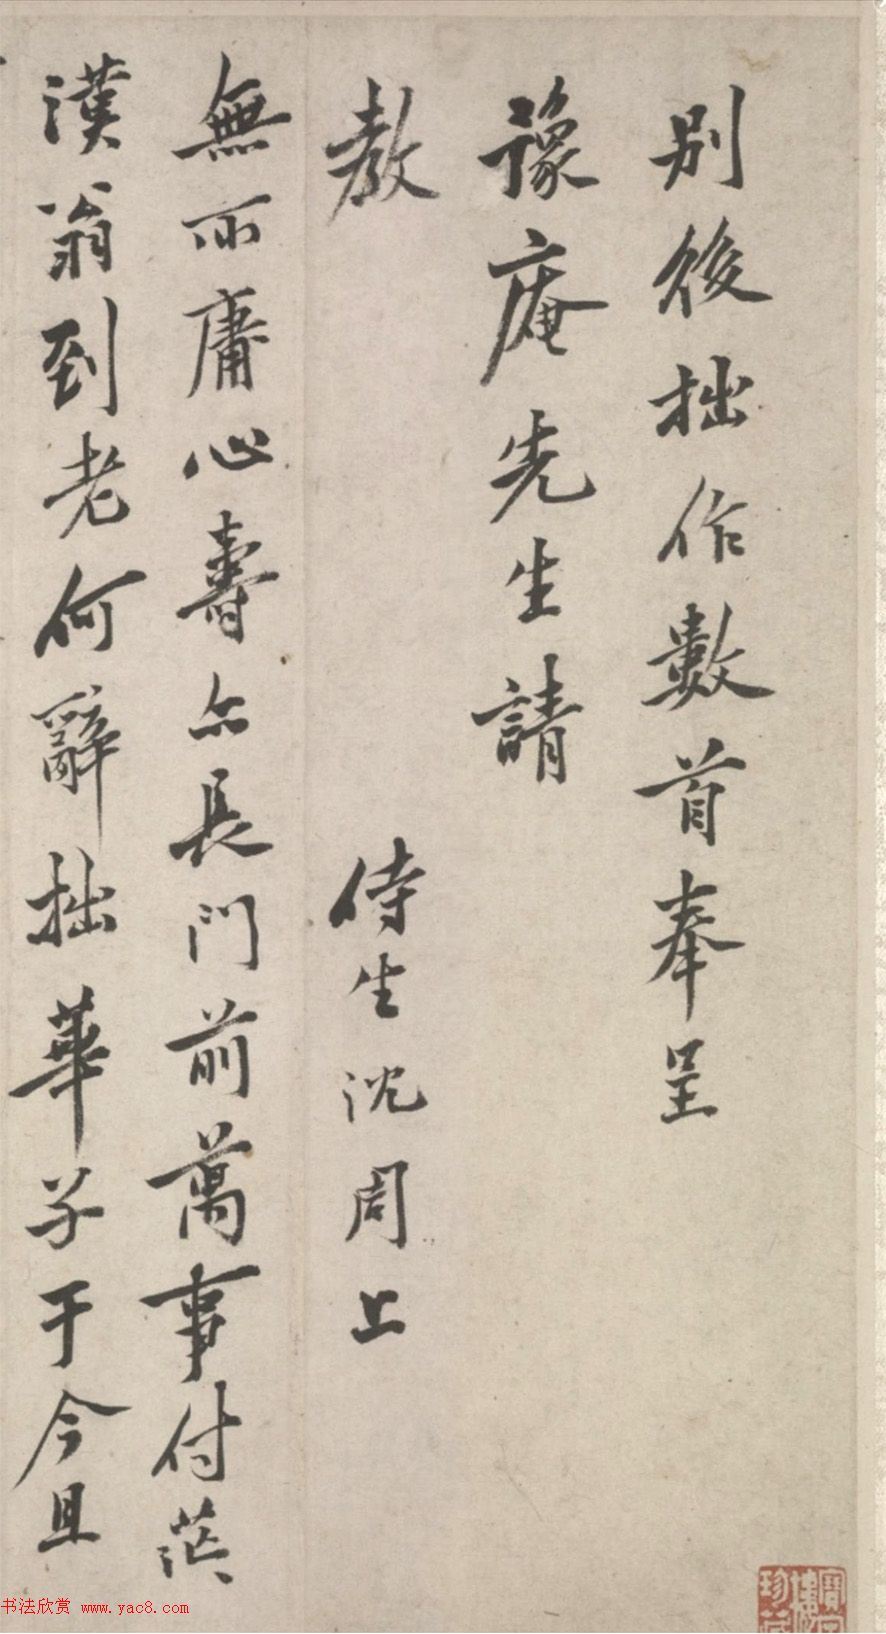 別後拙作數首奉呈
豫庵先生請
教 侍生沈周上
無所庸心壽亦長門前萬事付茫
漢翁到老何辭拙華子于今且
书法欣赏 www.yac8.com